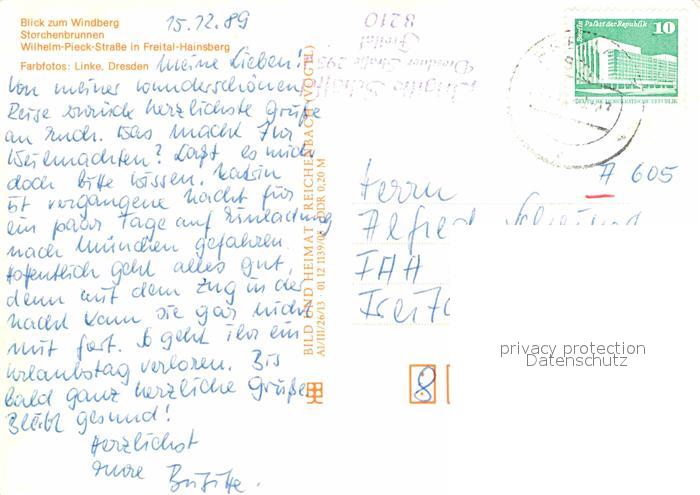 Blick zum Windberg
Storchenbrunnen
Wilhelm-Pieck-Straße in Freital-Hainsberg
Farbfotos: Linke, Dresden
15.12.89
Meine Lieben!
Von meiner wunderschönen
Reise zurück herzlichste Grüße
an Euch. Was macht Ihr
Weihnachten? Laßt es mich
doch bitte wissen. Katrin
ist vergangene Nacht für
ein paar Tage auf Einladung
nach München gefahren.
Hoffentlich geht alles gut,
denn mit dem Zug in der
Nacht kam sie gar nicht
mit fort. So geht ihr ein
Urlaubstag verloren. Bis
bald ganz herzliche Grüße.
Bleibt gesund!
Herzlichst
Eure Brigitte.
BILD UND HEIMAT REICHENBACH (VOGTL)
A1/III/26/13 01 12 1139/03 DDR 0,20 M
Brigitte
Dresdner Straße 295
Freital
8210
Berlin, Palast der Republik 10
DEUTSCHE DEMOKRATISCHE REPUBLIK
A 605
Herrn
Alfred
8
privacy protection
Datenschutz